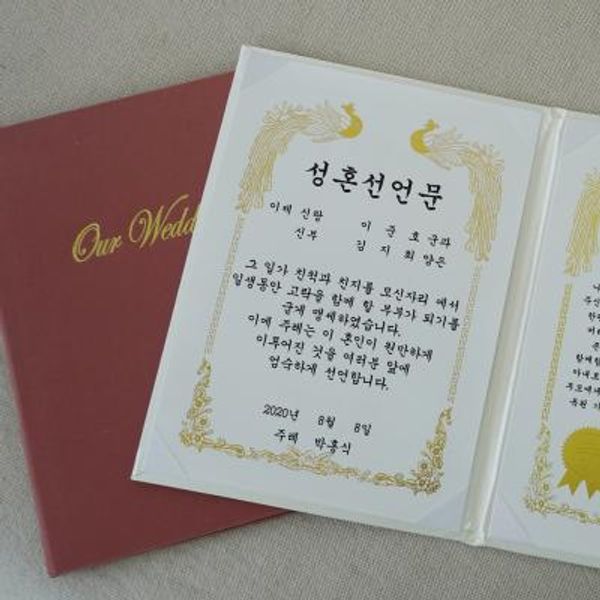 Our Wedd
성혼선언문
이제 신랑 이 준 호 군과
신부 김 지 희 양은
그 일가 친척과 친지를 모신자리 에서
일생동안 고락을 함께 할 부부가 되기를
굳게 맹세하였습니다.
이에 주례는 이 혼인이 원만하게
이루어진 것을 여러분 앞에
엄숙하게 선언합니다.
2020년 8월 8일
주례 박홍식